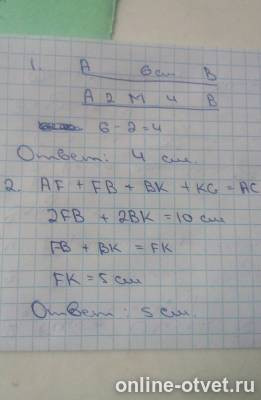 1. A 6 см B
A 2 M 4 B
6 - 2 = 4
Ответ: 4 см.
2. AF + FB + BK + KC = AC
2FB + 2BK = 10 см
FB + BK = FK
FK = 5 см
Ответ: 5 см.
online-otvet.ru